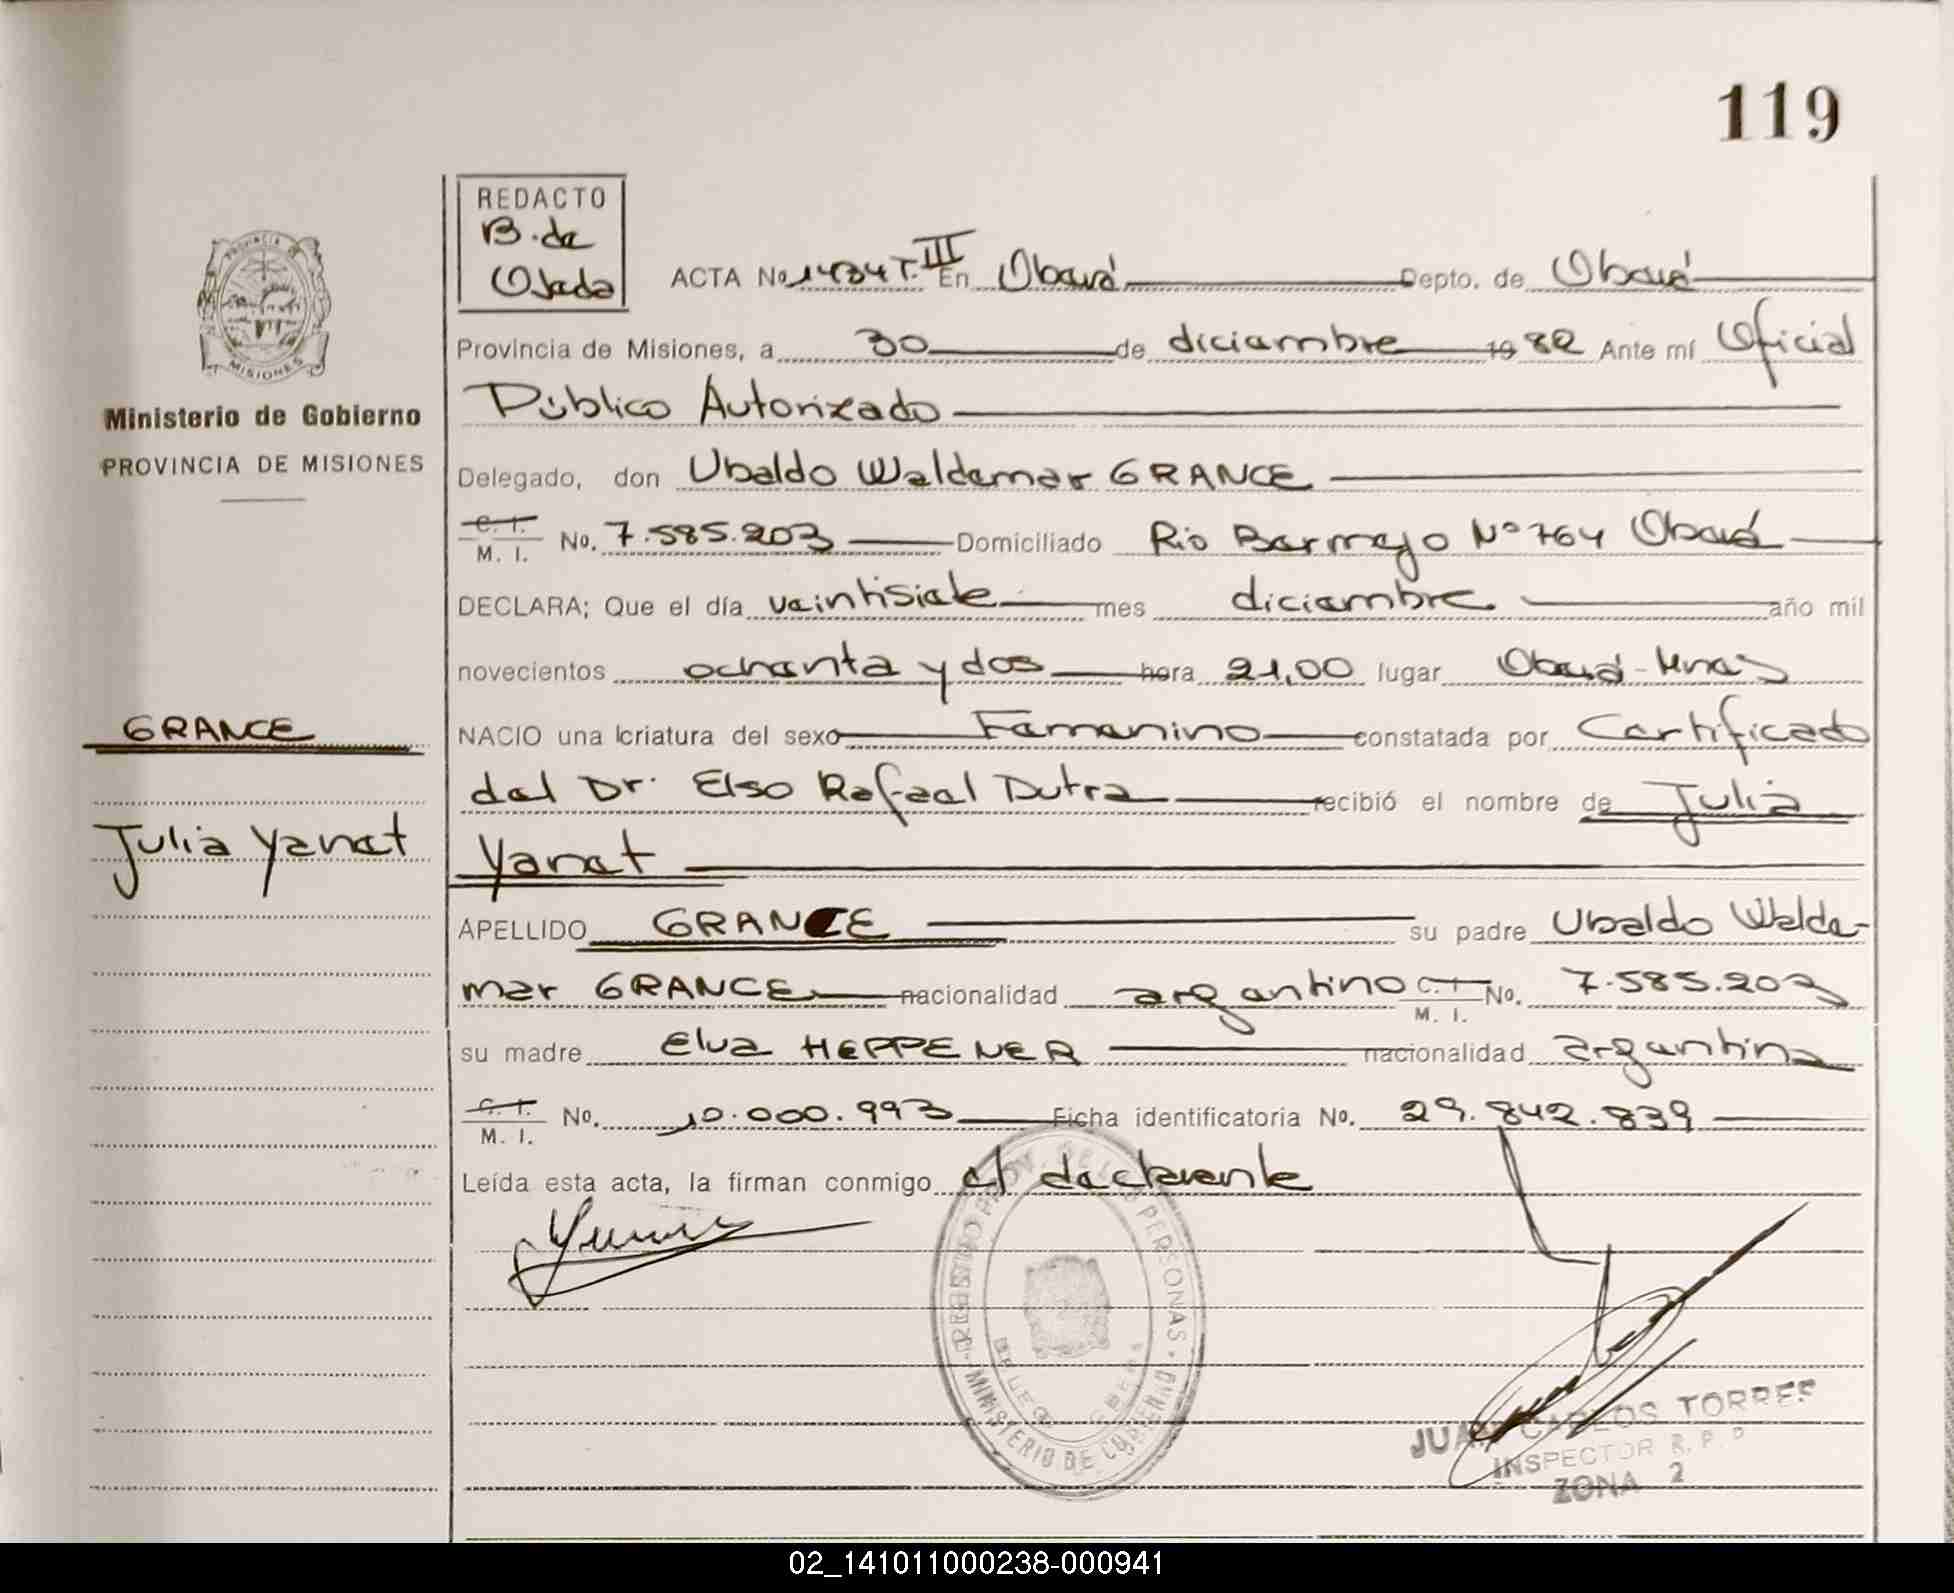 119
REDACTO
B. de
Ojeda
ACTA No. 1434 T. III En Oberá Depto. de Oberá
Provincia de Misiones, a 30 de diciembre 1982 Ante mí Oficial
Público Autorizado
Delegado, don Ubaldo Waldemar GRANCE
C. I. M. I. No. 7.585.203 Domiciliado Rio Bermejo Nº 764 Oberá
DECLARA; Que el día veintisiete mes diciembre año mil
novecientos ochenta y dos hora 21,00 lugar Oberá - Mnes
NACIO una criatura del sexo Femenino constatada por Certificado
del Dr. Elso Rafael Dutra recibió el nombre de Julia
Yanet
APELLIDO GRANCE su padre Ubaldo Walde-
mar GRANCE nacionalidad argentino C. I. M. I. No. 7.585.203
su madre Elva HEPPENER nacionalidad argentina
C. I. M. I. No. 10.000.993 Ficha identificatoria No. 29.842.839
Leída esta acta, la firman conmigo el declarante
PROVINCIA DE
MISIONES
Ministerio de Gobierno
PROVINCIA DE MISIONES
GRANCE
Julia Yanet
REGISTRO PROV. DE LAS PERSONAS
MINISTERIO DE GOBIERNO
JUAN CARLOS TORRES
INSPECTOR R. P. P.
ZONA 2
02_141011000238-000941